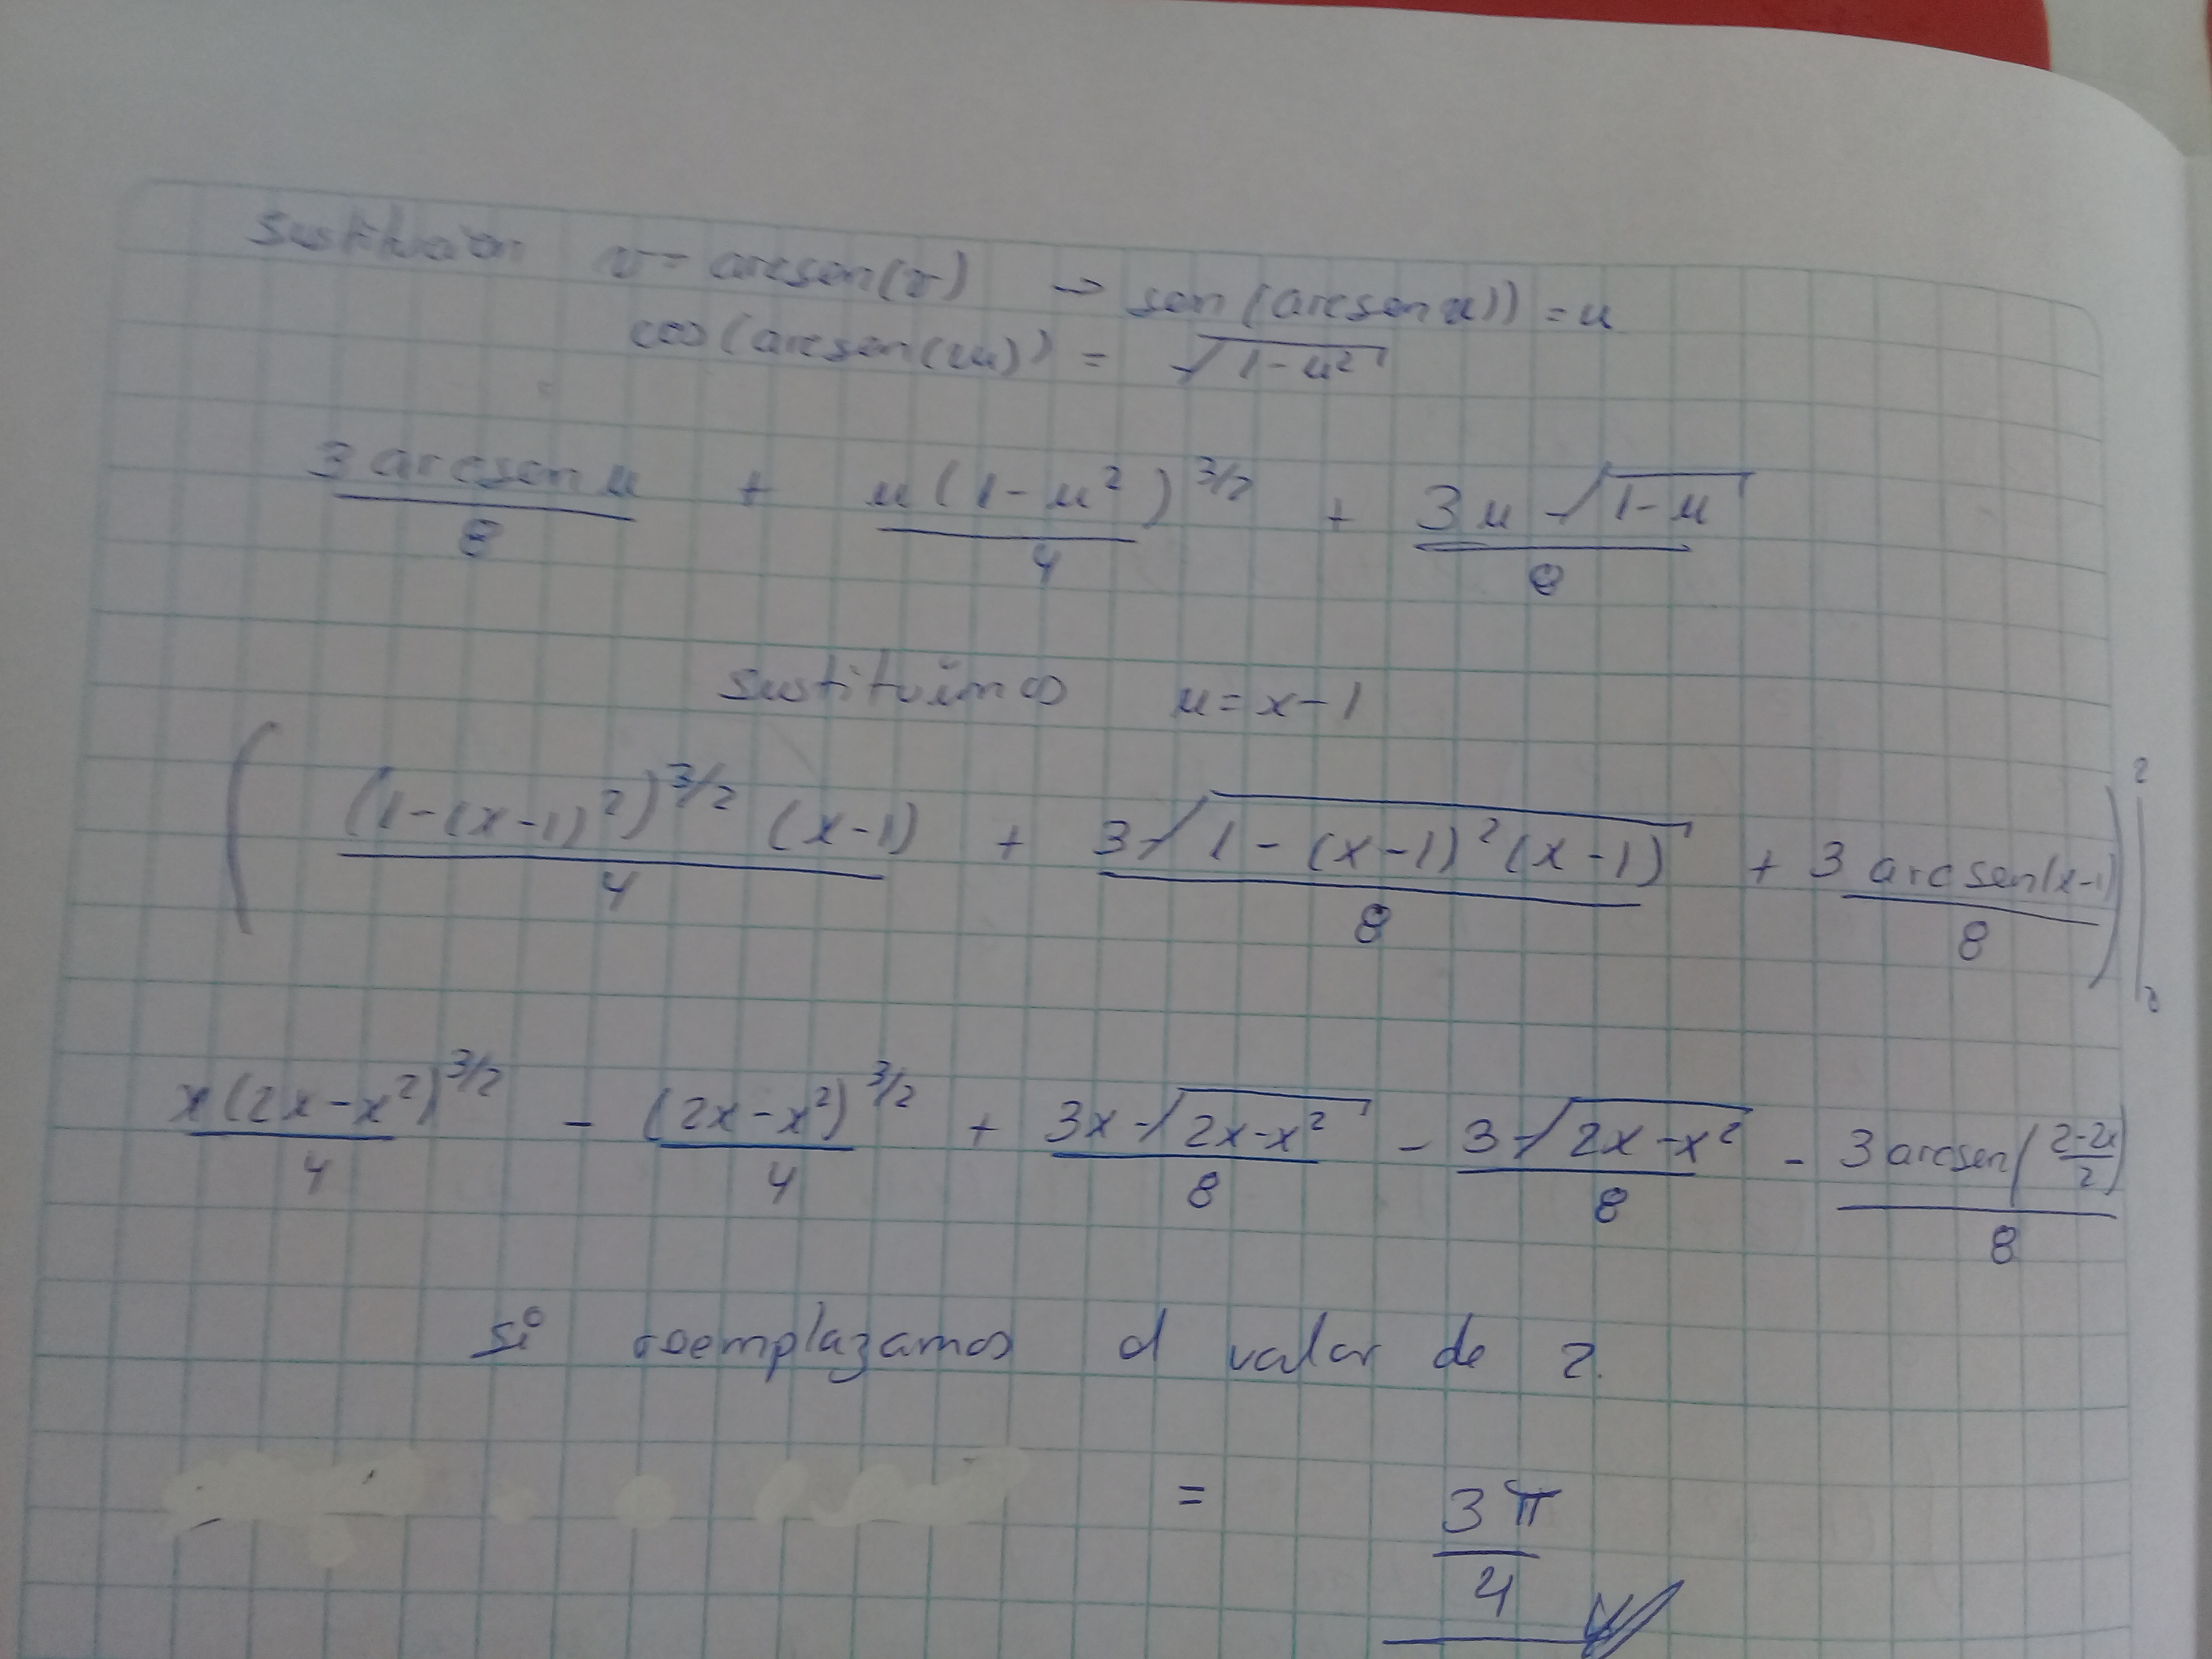 Sustitución v = arcsen(v) → sen(arcsen u)) = u
cos(arcsen(u)) = √1-u²
3 arcsen u / 8 + u(1-u²)^3/2 / 4 + 3u √1-u / 8
sustituimos u = x-1
( (1-(x-1)²)^3/2 (x-1) / 4 + 3√1-(x-1)²(x-1) / 8 + 3 arcsen(x-1) / 8 ) |
x(2x-x²)^3/2 / 4 - (2x-x²)^3/2 / 4 + 3x √2x-x² / 8 - 3√2x-x² / 8 - 3 arcsen(2-2x / 2) / 8
si reemplazamos el valor de 2.
= 3π / 4